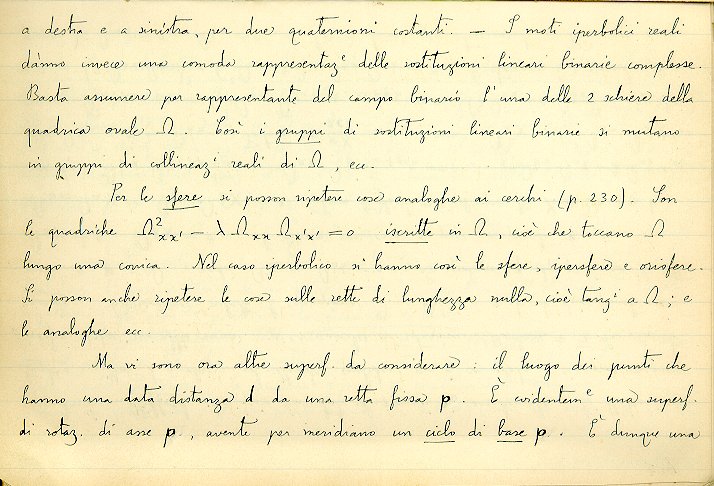 a destra e a sinistra, per due quaternioni costanti. — I moti iperbolici reali
dànno invece una comoda rappresentazᵉ delle sostituzioni lineari binarie complesse.
Basta assumere per rappresentante del campo binario l'una delle 2 schiere della
quadrica ovale Ω. Così i gruppi di sostituzioni lineari binarie si mutano
in gruppi di collineazⁱ reali di Ω, ecc.
Per le sfere si posson ripetere cose analoghe ai cerchi (p. 230). Son
le quadriche Ω²ₓₓ′ − λ Ωₓₓ Ωₓ′ₓ′ = 0 iscritte in Ω, cioè che toccano Ω
lungo una conica. Nel caso iperbolico si hanno così le sfere, ipersfere e orisfere.
Si posson anche ripetere le cose sulle rette di lunghezza nulla, cioè tangⁱ a Ω; e
le analoghe ecc.
Ma vi sono ora altre superf. da considerare: il luogo dei punti che
hanno una data distanza d da una retta fissa p. È evidentemᵉ una superf.
di rotaz. di asse p, avente per meridiano un ciclo di base p. È dunque una